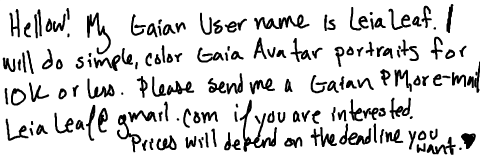 Hellow! My Gaian Username is LeiaLeaf. I
will do simple, color Gaia Avatar portraits for
10K or less. Please send me a Gaian PM, or e-mail
LeiaLeaf@gmail.com if you are interested.
Prices will depend on the deadline you
want. ♥